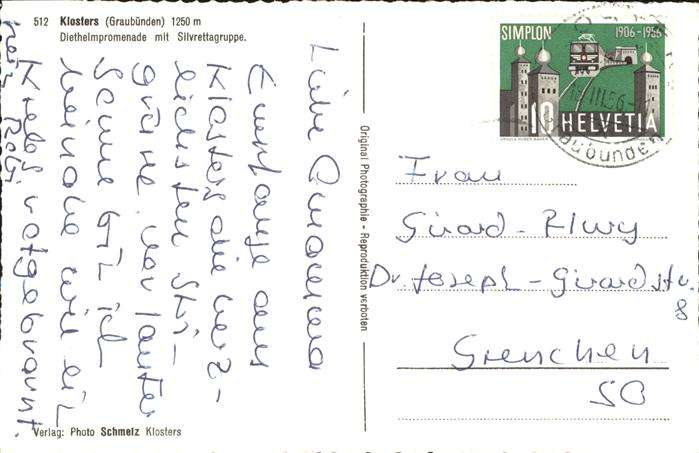 512 Klosters (Graubünden) 1250 m
Diethelmpromenade mit Silvrettagruppe.
Liebe Omama
Empfange aus
Klosters die herz-
lichsten Ski-
grüsse. Vor lauter
Sonne bin ich
beinahe wie ein
Krebs rotgebrannt.
Verlag: Photo Schmelz Klosters
Original Photographie - Reproduktion verboten
SIMPLON 1906-1956
10 HELVETIA
Frau
Girard-Flury
Dr. Joseph-Girardstr.
8
Grenchen
SO